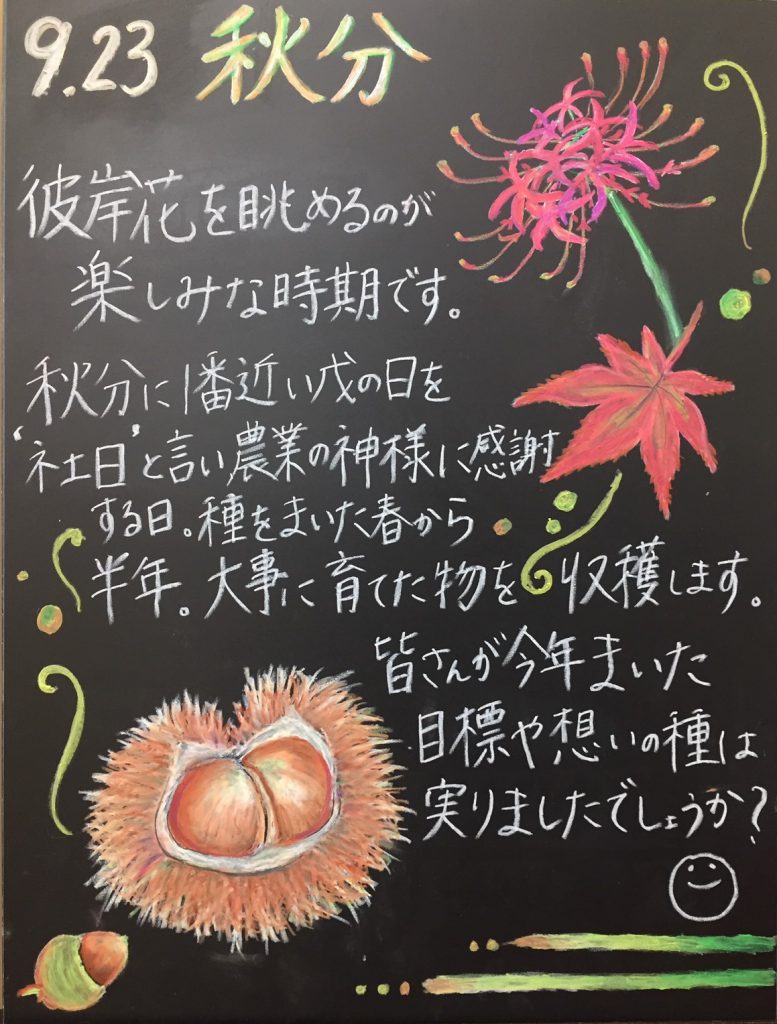 9.23 秋分
彼岸花を眺めるのが
楽しみな時期です。
秋分に1番近い戊の日を
"社日"と言い農業の神様に感謝
する日。種をまいた春から
半年。大事に育てた物を収穫します。
皆さんが今年まいた
目標や想いの種は
実りましたでしょうか?